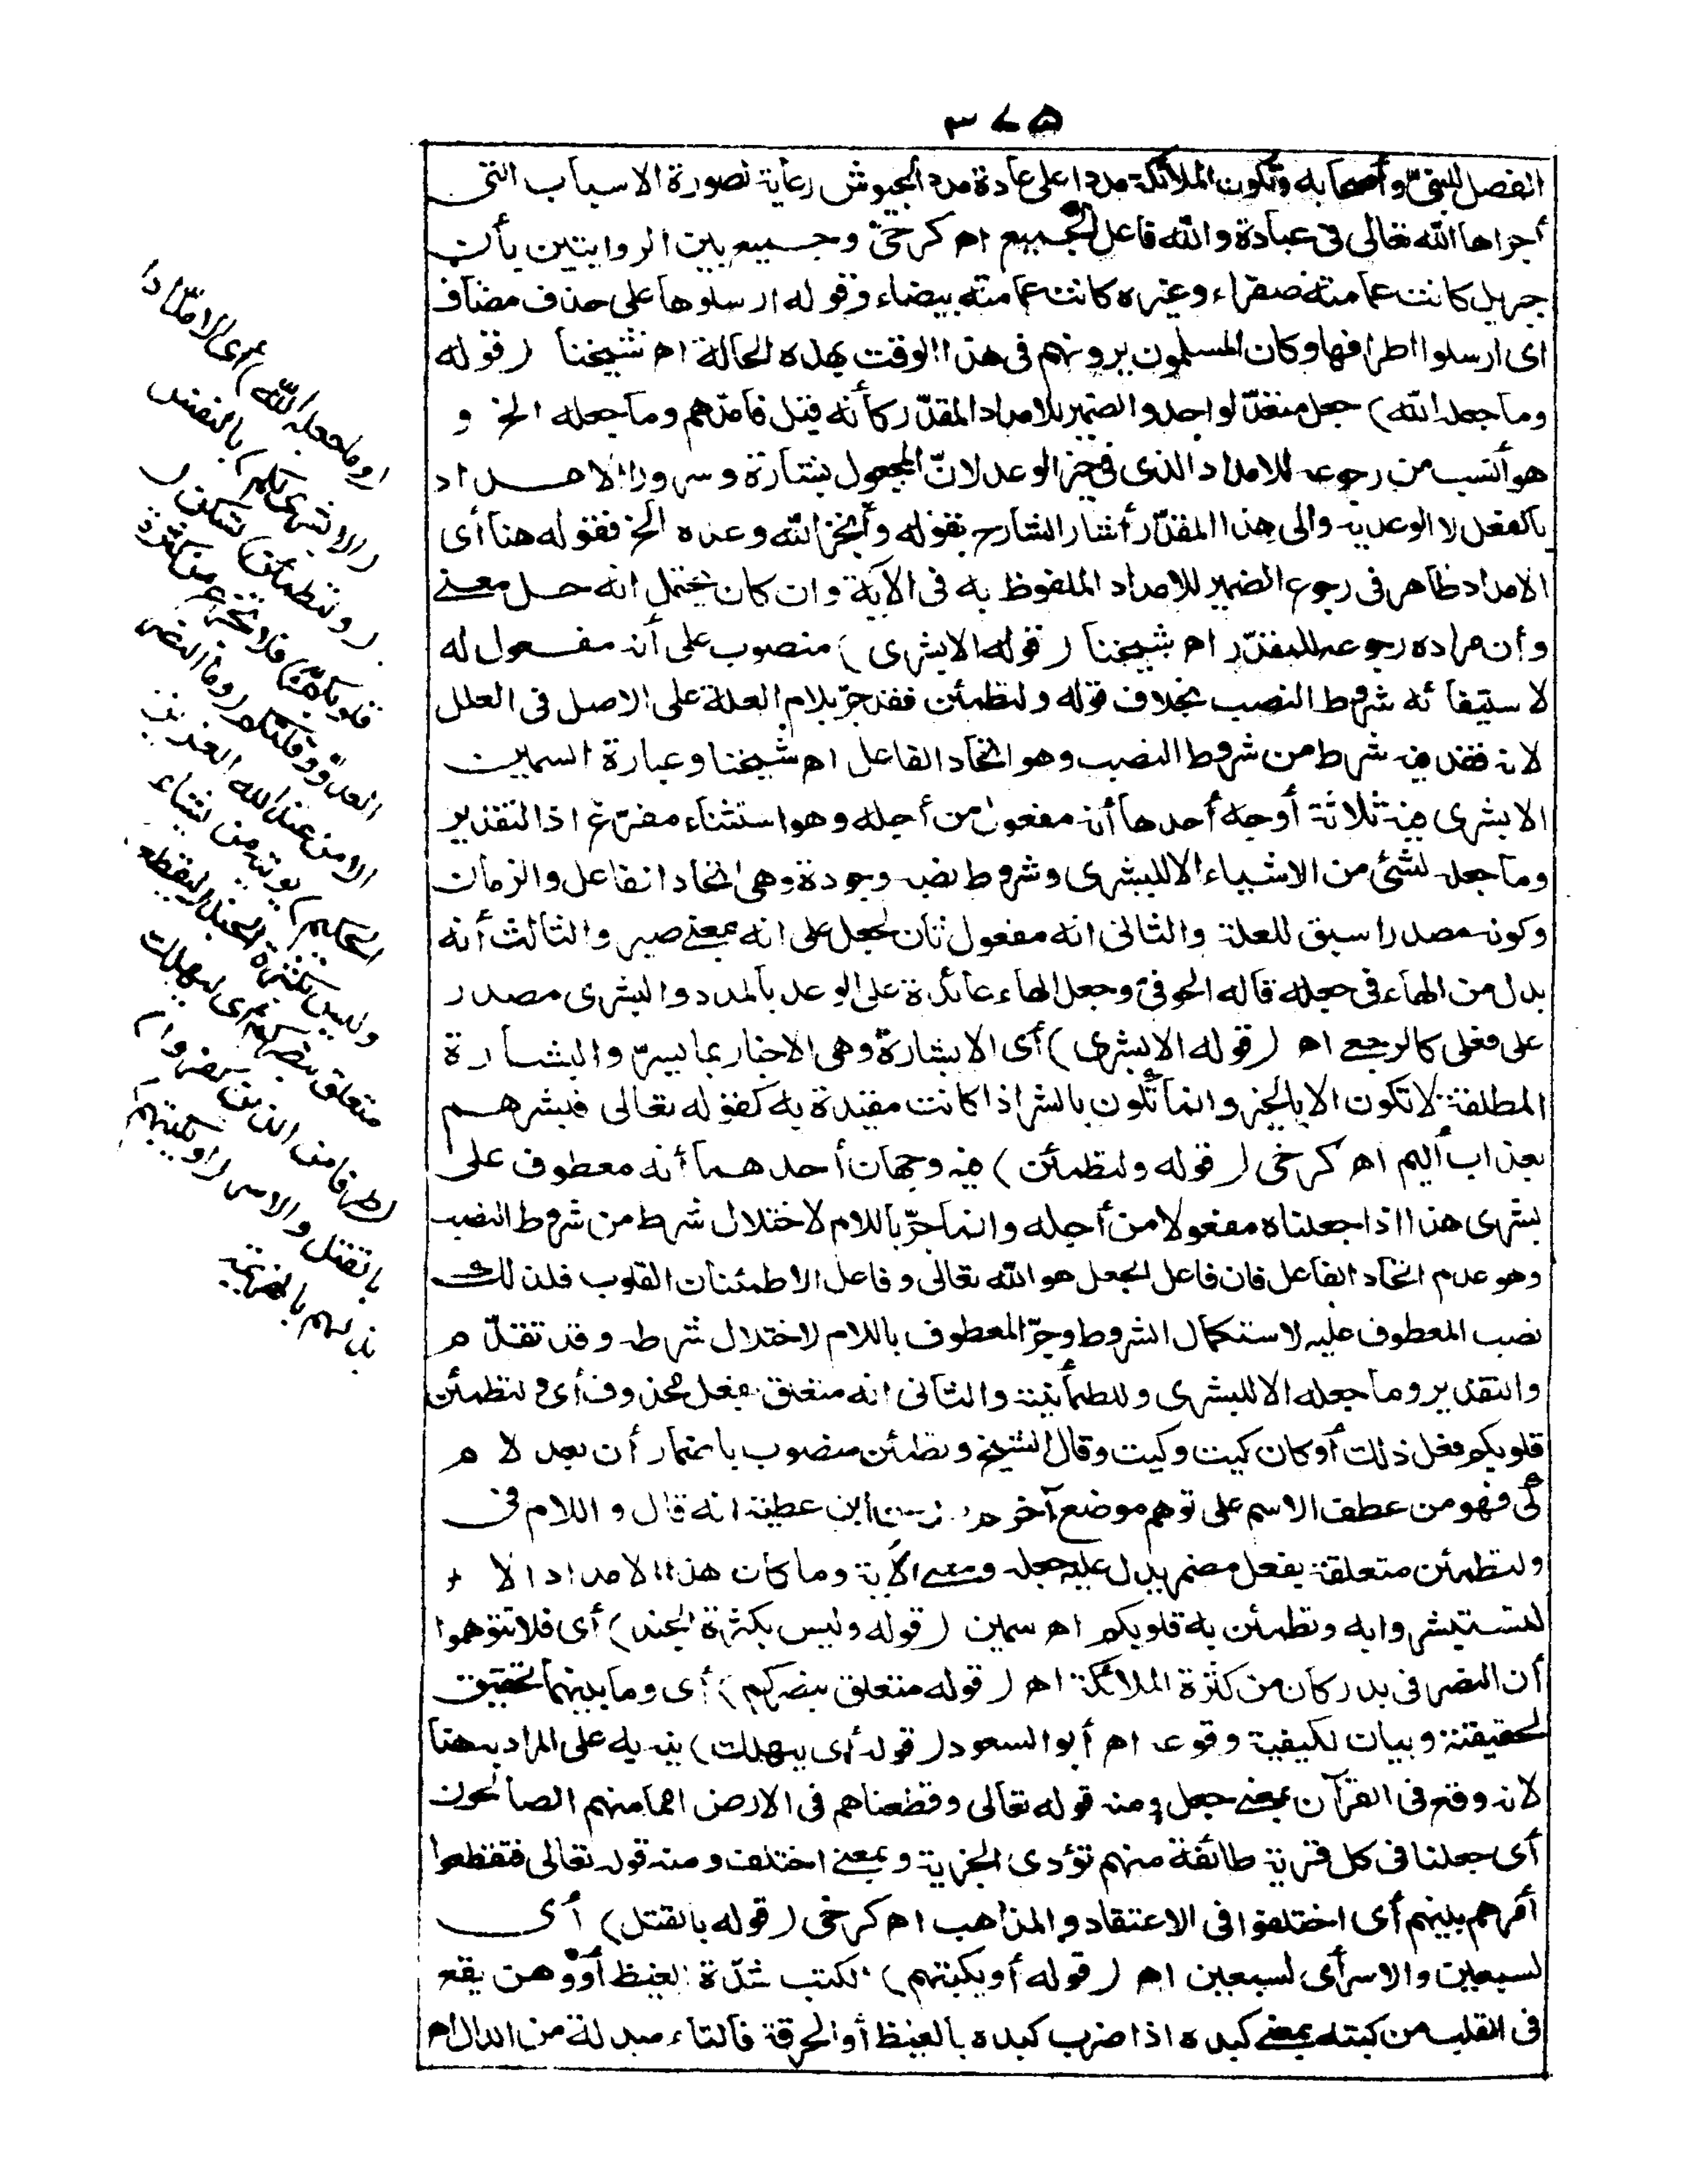 ٣٧٥
الفضل للنبيّ وأصحابه وتكون الملائكة مددا على عادة مدد الجيوش رعاية لصورة الاسباب التى
أجراها الله تعالى فى عباده والله فاعل الجميع اه كرخىّ وجميع بين الروايتين بأن
جبريل كانت عمامته صفراء وغيره كانت عمامته بيضاء وقوله ارسلوها على حذف مضاف
اى ارسلوا اطرافها وكان المسلمون يرونهم فى هذا الوقت بهذه الحالة اه شيخنا (قوله
وما جعله الله) جعل متعدّ لواحد والضمير للامداد المقدّر كأنه قيل فأمدّهم وما جعله الخ و
هو أنسب من رجوعه للامداد الذى فى حيز الوعد لانّ المجعول بشارة وسرورا الامداد
بالفعل لا الوعد به والى هذا المقدّر أشار الشارح بقوله وأنجز الله وعده الخ فقوله هنا أى
الامداد ظاهر فى رجوع الضمير للامداد الملفوظ به فى الآية وان كان يحتمل انه حل معنى
وأن مراده رجوعه للمقدّر اه شيخنا (قوله الا بشرى) منصوب على أنه مفعول له
لاستيفائه شروط النصب بخلاف قوله ولتطمئن فقد جرّ بلام العلة على الاصل فى العلل
لانه فقد فيه شرط من شروط النصب وهو اتحاد الفاعل اه شيخنا وعبارة السمين
الا بشرى فيه ثلاثة أوجه أحدها أنه مفعول من أجله وهو استثناء مفرّغ اذ التقدير
وما جعله لشئ من الاشياء الا للبشرى وشروط نصبه موجودة وهى اتحاد الفاعل والزمان
وكونه مصدرا سيق للعلة والثانى انه مفعول ثان لجعل على انه بمعنى صير والثالث أنه
بدل من الهاء فى جعله قاله الحوفىّ وجعل الهاء عائدة على الوعد بالمدد والبشرى مصدر
على فعلى كالرجعى اه (قوله الا بشرى) أى الا بشارة وهى الاخبار بما يسرّ والبشارة
المطلقة لا تكون الا بالخير وانما تكون بالشر اذا كانت مقيدة به كقوله تعالى فبشرهم
بعذاب أليم اه كرخى (قوله ولتطمئن) فيه وجهان أحدهما أنه معطوف على
بشرى هذا اذا جعلناه مفعولا من أجله وانما جرّ باللام لاختلال شرط من شروط النصب
وهو عدم اتحاد الفاعل فان فاعل الجعل هو الله تعالى وفاعل الاطمئنان القلوب فلذلك
نصب المعطوف عليه لاستكمال الشروط وجرّ المعطوف باللام لاختلال شرطه وقد تقدّم
والتقدير وما جعله الا للبشرى وللطمأنينة والثانى انه متعلق بفعل محذوف أى ولتطمئن
قلوبكم فعل ذلك أو كان كيت وكيت وقال الشيخ وتطمئن منصوب باضمار أن بعد لام
كى فهو من عطف الاسم على توهم موضع آخر ابن عطية انه قال واللام فى
ولتطمئن متعلقة بفعل مضمر يدل عليه جعله ومعنى الآية وما كان هذا الامداد الا
لتستبشروا به وتطمئن به قلوبكم اه سمين (قوله وليس بكثرة الجند) أى فلا تتوهموا
أن النصر فى بدر كان من كثرة الملائكة اه (قوله متعلق بنصركم) أى وما بينهما تحقيق
لحقيقته وبيان لكيفية وقوعه اه أبو السعود (قوله أى ليهلك) نبه به على المراد به هنا
لانه وقع فى القرآن بمعنى جعل ومنه قوله تعالى وقطعناهم فى الارض امما منهم الصالحون
أى جعلنا فى كل قرية طائفة منهم تؤدى الجزية وبمعنى اختلف ومنه قوله تعالى فتقطعوا
أمرهم بينهم أى اختلفوا فى الاعتقاد والمذاهب اه كرخى (قوله بالقتل) أى
لسبعين والاسر أى لسبعين اه (قوله أو يكبتهم) الكبت شدّة الغيظ أو وهن يقع
فى القلب من كبته بمعنى كبده اذا ضرب كبده بالغيظ أو الحرقة فالتاء مبدلة من الدال اه
(وما جعله الله) أى الامداد
(الا بشرى لكم) بالنصر
(ولتطمئن) تسكن (
قلوبكم به) فلا تجزع من كثرة
العدوّ وقلتكم (وما النصر
الا من عند الله العزيز
الحكيم) يؤتيه من يشاء
وليس بكثرة الجند (ليقطع)
متعلق بنصركم أى ليهلك
(طرفا من الذين كفروا)
بالقتل والاسر (أو يكبتهم)
يذلهم بالهزيمة